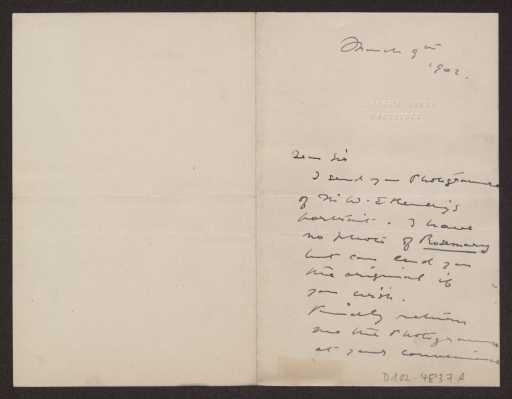 March 9th
1902.
Dear Sir
I send you Photogravure
of Mr W. E Henley's
portrait. I have
no photo of Rosemary
but can lend you
the original if
you wish.
Kindly return
me the Photogravure
at your convenience
D102-4837A